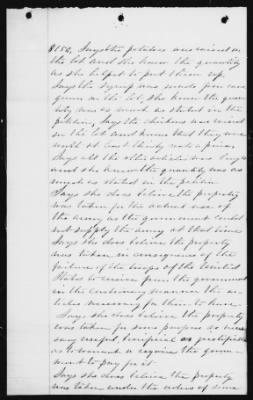 $150, Says the potatoes were raised on
the lot and she knew the quantity
as she helped to put them up.
Says the syrup was made from cane
grown on the lot, she knew the quan-
tity was as much as stated in the
petition, Says the chickens were raised
on the lot and knows that they were
worth at least thirty cents a piece,
Says all the other articles was bought
and she knew the quantity was as
much as stated in the petition
Says she does believe the property
was taken for the actual use of
the army as the government could
not supply the army at that time
Says she does believe the property
was taken in consequence of the
failure of the troops of the United
States to receive from the government
in the customary manner the ar-
ticles necessary for them to have.
Says she does believe the property
was taken for some purpose so neces-
sary useful beneficial or justifiable
as to warrant or require the govern-
ment to pay for it.
Says she does believe the property
was taken under the orders of some